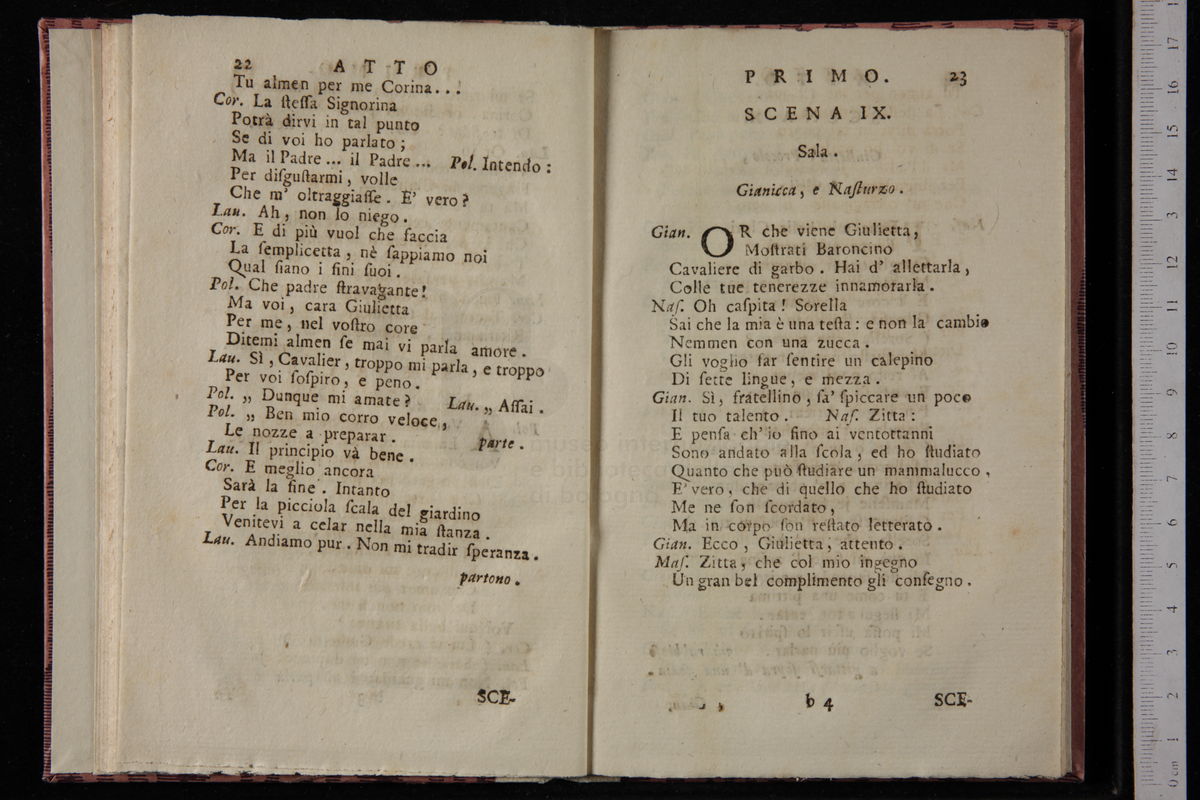 22 ATTO
Tu almen per me Corina...
Cor. La ſteſſa Signorina
Potrà dirvi in tal punto
Se di voi ho parlato ;
Ma il Padre ... il Padre ... Pol. Intendo :
Per diſguſtarmi , volle
Che m' oltraggiaſſe . E' vero ?
Lau. Ah , non lo niego .
Cor. E di più vuol che faccia
La ſemplicetta , nè ſappiamo noi
Qual ſiano i fini ſuoi .
Pol. Che padre ſtravagante !
Ma voi , cara Giulietta
Per me , nel voſtro core
Ditemi almen ſe mai vi parla amore .
Lau. Sì , Cavalier , troppo mi parla , e troppo
Per voi ſoſpiro , e peno .
Pol. „ Dunque mi amate ? Lau. „ Aſſai .
Pol. „ Ben mio corro veloce ,
Le nozze a preparar . parte .
Lau. Il principio và bene .
Cor. E meglio ancora
Sarà la fine . Intanto
Per la picciola ſcala del giardino
Venitevi a celar nella mia ſtanza .
Lau. Andiamo pur . Non mi tradir ſperanza .
partono .
SCE-
PRIMO. 23
SCENA IX.
Sala .
Gianicca , e Naſturzo .
Gian. OR che viene Giulietta ,
Moſtrati Baroncino
Cavaliere di garbo . Hai d' allettarla ,
Colle tue tenerezze innamorarla .
Naſ. Oh caſpita ! Sorella
Sai che la mia è una teſta : e non la cambio
Nemmen con una zucca .
Gli voglio far ſentire un calepino
Di ſette lingue , e mezza .
Gian. Sì , fratellino , fa' ſpiccare un poco
Il tuo talento . Naſ. Zitta :
E penſa ch' io fino ai ventottanni
Sono andato alla ſcola , ed ho ſtudiato
Quanto che può ſtudiare un mammalucco ,
E' vero , che di quello che ho ſtudiato
Me ne ſon ſcordato ,
Ma in corpo ſon reſtato letterato .
Gian. Ecco , Giulietta , attento .
Maſ. Zitta , che col mio ingegno
Un gran bel complimento gli conſegno .
b 4 SCE-
museo inter
e biblioteca
di bologna